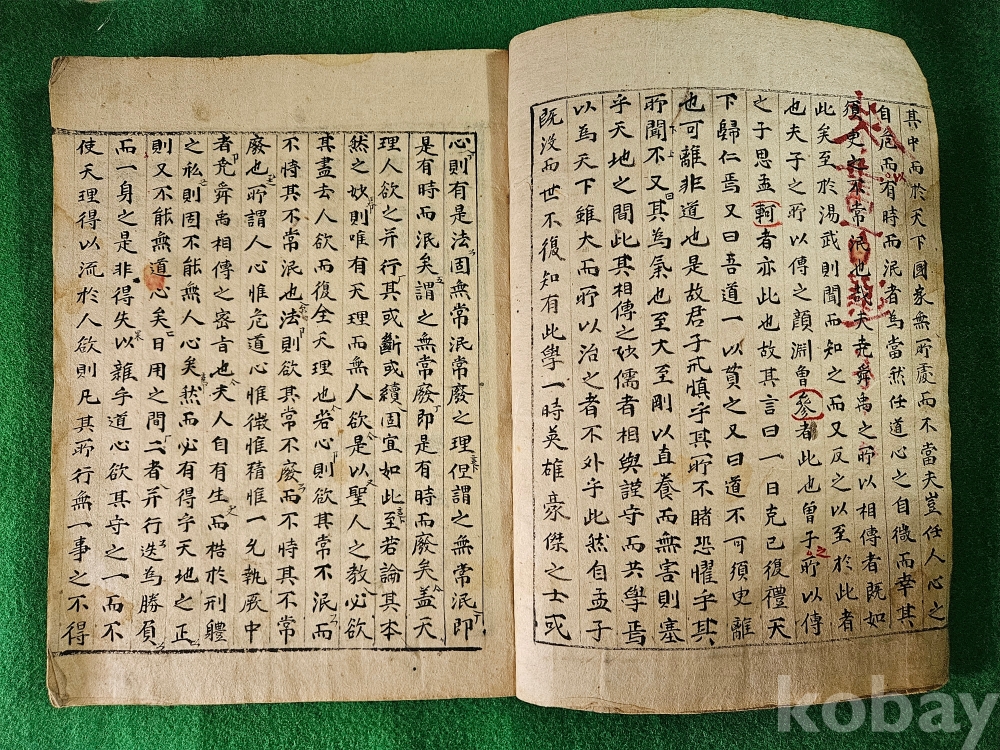 其中而於天下國家無所處而不當夫豈任人心之
自危而有時而泯者為當然任道心之自微而幸其
須臾之不常泯也哉夫堯舜禹之所以相傳者既如
此矣至於湯武則聞而知之而又反之以至於此者
也夫子之所以傳之顏淵曾參者此也曾子之所以傳
之子思孟軻者亦此也故其言曰一日克己復禮天
下歸仁焉又曰吾道一以貫之又曰道不可須臾離
也可離非道也是故君子戒慎乎其所不睹恐懼乎其
所聞不又曰其為氣也至大至剛以直養而無害則塞
乎天地之間此其相傳之妙儒者相與謹守而共學焉
以為天下雖大而所以治之者不外乎此然自孟子
既沒而世不復知有此學一時英雄豪傑之士或
心則有是法固無常泯常廢之理但謂之無常泯即
是有時而泯矣謂之無常廢即是有時而廢矣盖天
理人欲之并行其或斷或續固宜如此至若論其本
然之妙則唯有天理而無人欲是以聖人之教必欲
其盡去人欲而復全天理也若心則欲其常不泯而
不恃其不常泯也法則欲其常不廢而不恃其不常
廢也所謂人心惟危道心惟微惟精惟一允執厥中
者堯舜禹相傳之密旨也夫人自有生而梏於形體
之私則固不能無人心矣然而必有得乎天地之正
則又不能無道心矣日用之間二者并行迭為勝負
而一身之是非得失以雜乎道心欲其守之一而不
使天理得以流於人欲則凡其所行無一事之不得
kobay